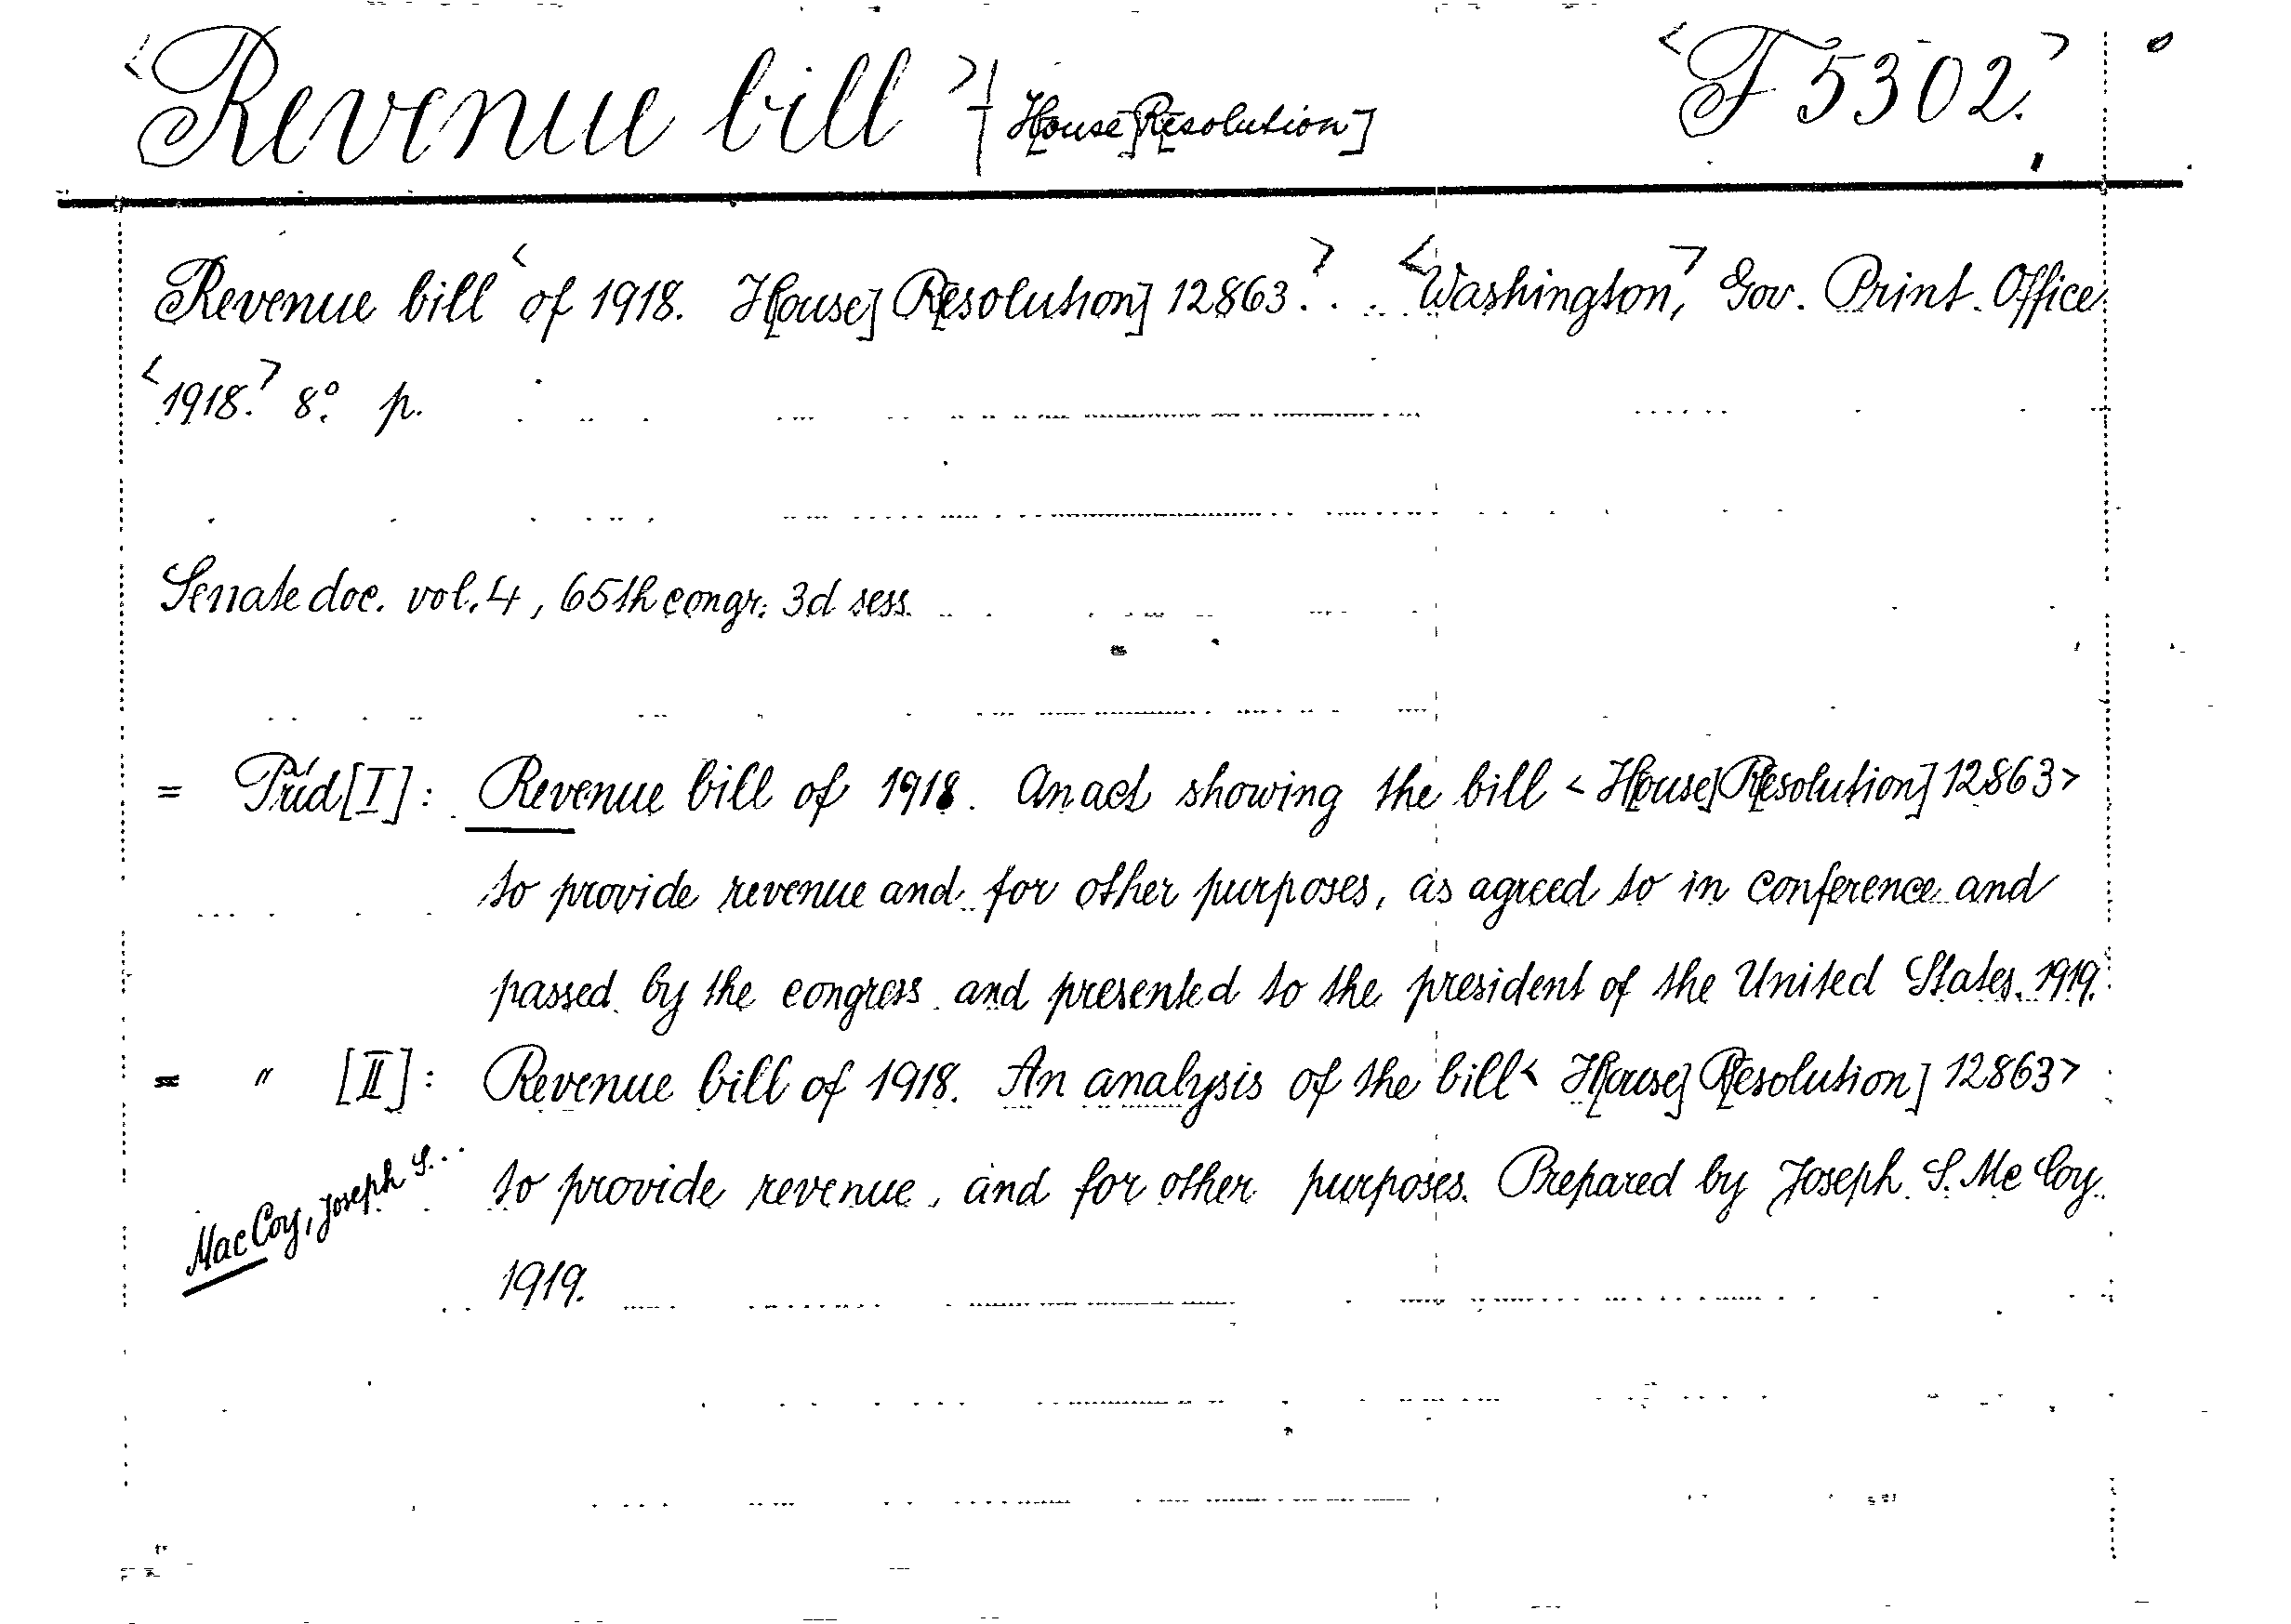 <Revenue bill> + H[ouse] R[esolution] <F 5302.>
Revenue bill < of 1918. H[ouse] R[esolution] 12863.> . . <Washington,> Gov. Print. Office
<1918.> 8°. p.
Senate doc. vol. 4, 65th congr. 3d sess.
= Příd [I]: Revenue bill of 1918. An act showing the bill < H[ouse] R[esolution] 12863>
to provide revenue and for other purposes, as agreed to in conference and
passed by the congress and presented to the president of the United States. 1919.
= " [II]: Revenue bill of 1918. An analysis of the bill < H[ouse] R[esolution] 12863>
to provide revenue, and for other purposes. Prepared by Joseph S. Mc Coy.
Mac Coy, Joseph S...
1919.